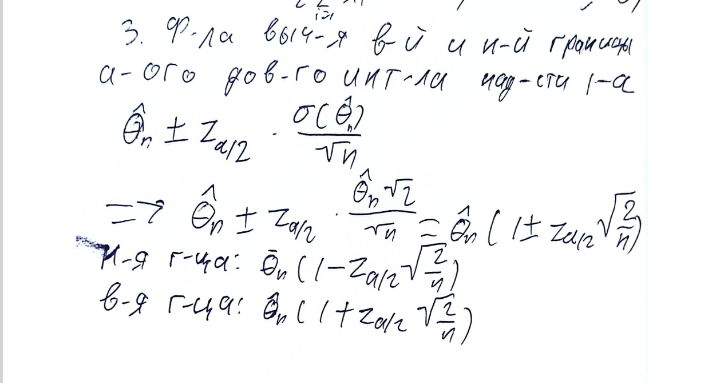 3. Ф-ла выч-я в-й и н-й границы
а-ого дов-го инт-ла над-сти 1-α
θ̂ₙ ± z_{α/2} · σ(θ̂ₙ)/√n
=> θ̂ₙ ± z_{α/2} · θ̂ₙ√2/√n = θ̂ₙ (1 ± z_{α/2} √(2/n))
н-я г-ца: θ̂ₙ (1 - z_{α/2} √(2/n))
в-я г-ца: θ̂ₙ (1 + z_{α/2} √(2/n))